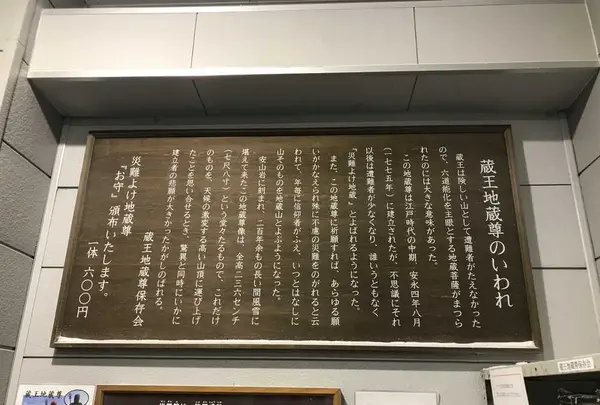 蔵王地蔵尊のいわれ
蔵王は険しい山として遭難者がたえなかった
ので、六道能化を主眼とする地蔵菩薩がまつら
れたのには大きな意味があった。
この地蔵尊は江戸時代の中期、安永四年八月
(一七七五年)に建立されたが、不思議にそれ
以後は遭難者が少なくなり、誰いうともなく
『災難よけ地蔵』とよばれるようになった。
また、この地蔵尊に祈願すれば、あらゆる願
いがかなえられ殊に不慮の災難をのがれると云
われて、年毎に信仰者がふえ、いつとはなしに
山そのものを地蔵山とよぶようになった。
安山岩に刻まれ、二百年余もの長い間風雪に
堪えて来たこの地蔵尊像は、全高二三六センチ
(七尺八寸)という堂々たるもので、これだけ
のものを、天候の激変する高い山頂に運び上げ
たことを思い合せるとき、驚異と同時にいかに
建立者の悲願が大きかったかがしのばれる。
蔵王地蔵尊保存会
災難よけ地蔵尊
『お守』頒布いたします。
一体 六〇〇円
蔵王地蔵尊
蔵王地蔵尊保存会